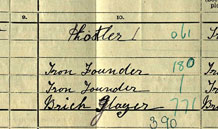 9. 10.
Hostler / 061
Iron Founder 180
Iron Founder 1
Brick Glazer 771
390